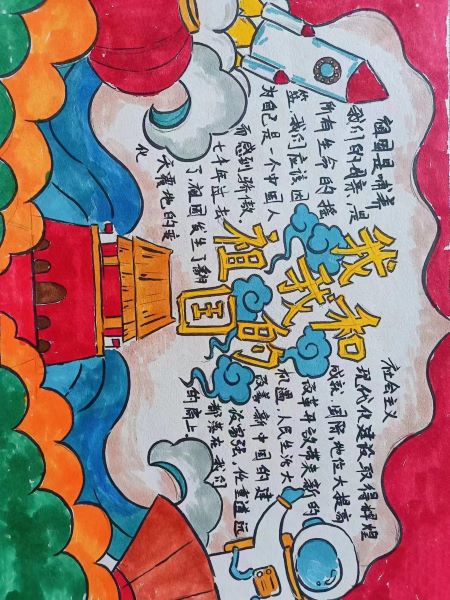 我和我的祖国
祖国是哺养
我们的母亲,是
所有生命的摇
篮,我们应该因
为自己是一个中国人
而感到骄傲.
七千年过去
了,祖国发生了翻
天覆地的变
化
社会主义
现代化建设取得辉煌
成就,国际地位大提高
改革开放带来新的
机遇,人民生活大
改善,新中国的建
设富强,任重道远
都落在我们
的肩上